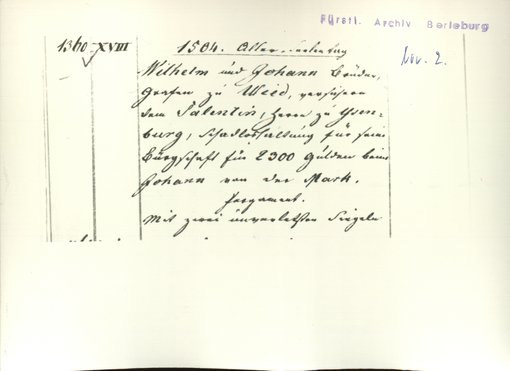 Fürstl. Archiv Berleburg
1360 XVIII
1504. Aller
Nov. 2.
Wilhelm und Johann Brüder,
Grafen zu Wied, versichern
dem Salentin, Herrn zu Ysen-
burg, Schadloshaltung für seine
Bürgschaft für 2300 Gulden beim
Johann von der Mark.
Pergament.
Mit zwei unverletzten Siegeln